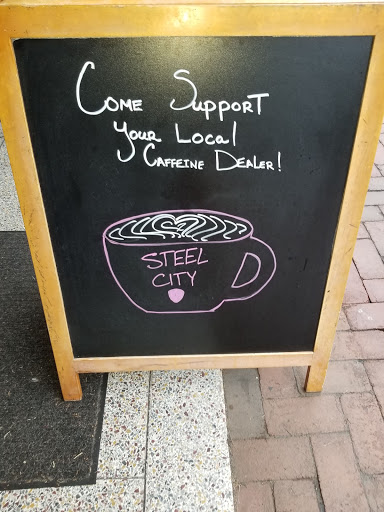 Come Support
Your Local
Caffeine Dealer!
STEEL
CITY